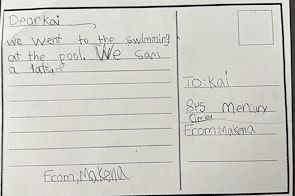 Dear kai,
We went to the swimming
at the pool. We sam
a lats.
From, Makena
To: Kai
815 Mercury
Circle
From: Makena